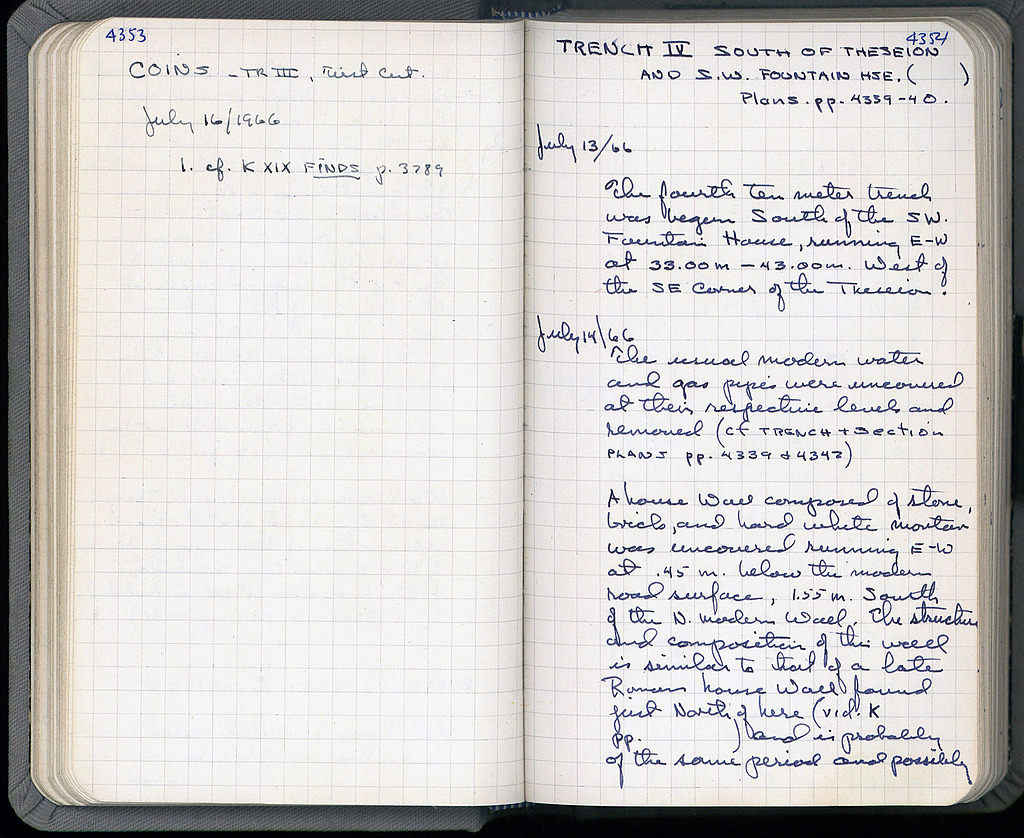 4353
COINS - TR III, First Cut.
July 16/1966
1. cf. K XIX FINDS p. 3789
4354
TRENCH IV SOUTH OF THESEION
AND S.W. FOUNTAIN HSE. ( )
Plans. pp. 4339-40.
July 13/66
The fourth ten meter trench
was begun South of the SW.
Fountain House, running E-W
at 33.00m - 43.00m. West of
the SE Corner of the Theseion.
July 14/66
The usual modern water
and gas pipes were uncovered
at their respective levels and
removed (cf TRENCH + Section
PLANS pp. 4339 & 4342)
A house Wall composed of stone,
brick, and hard white mortar
was uncovered running E-W
at .45 m. below the modern
road surface, 1.55 m. South
of the N. modern Wall. The structure
and composition of this wall
is similar to that of a late
Roman house Wall found
just North of here (vid. K
pp. ) and is probably
of the same period and possibly